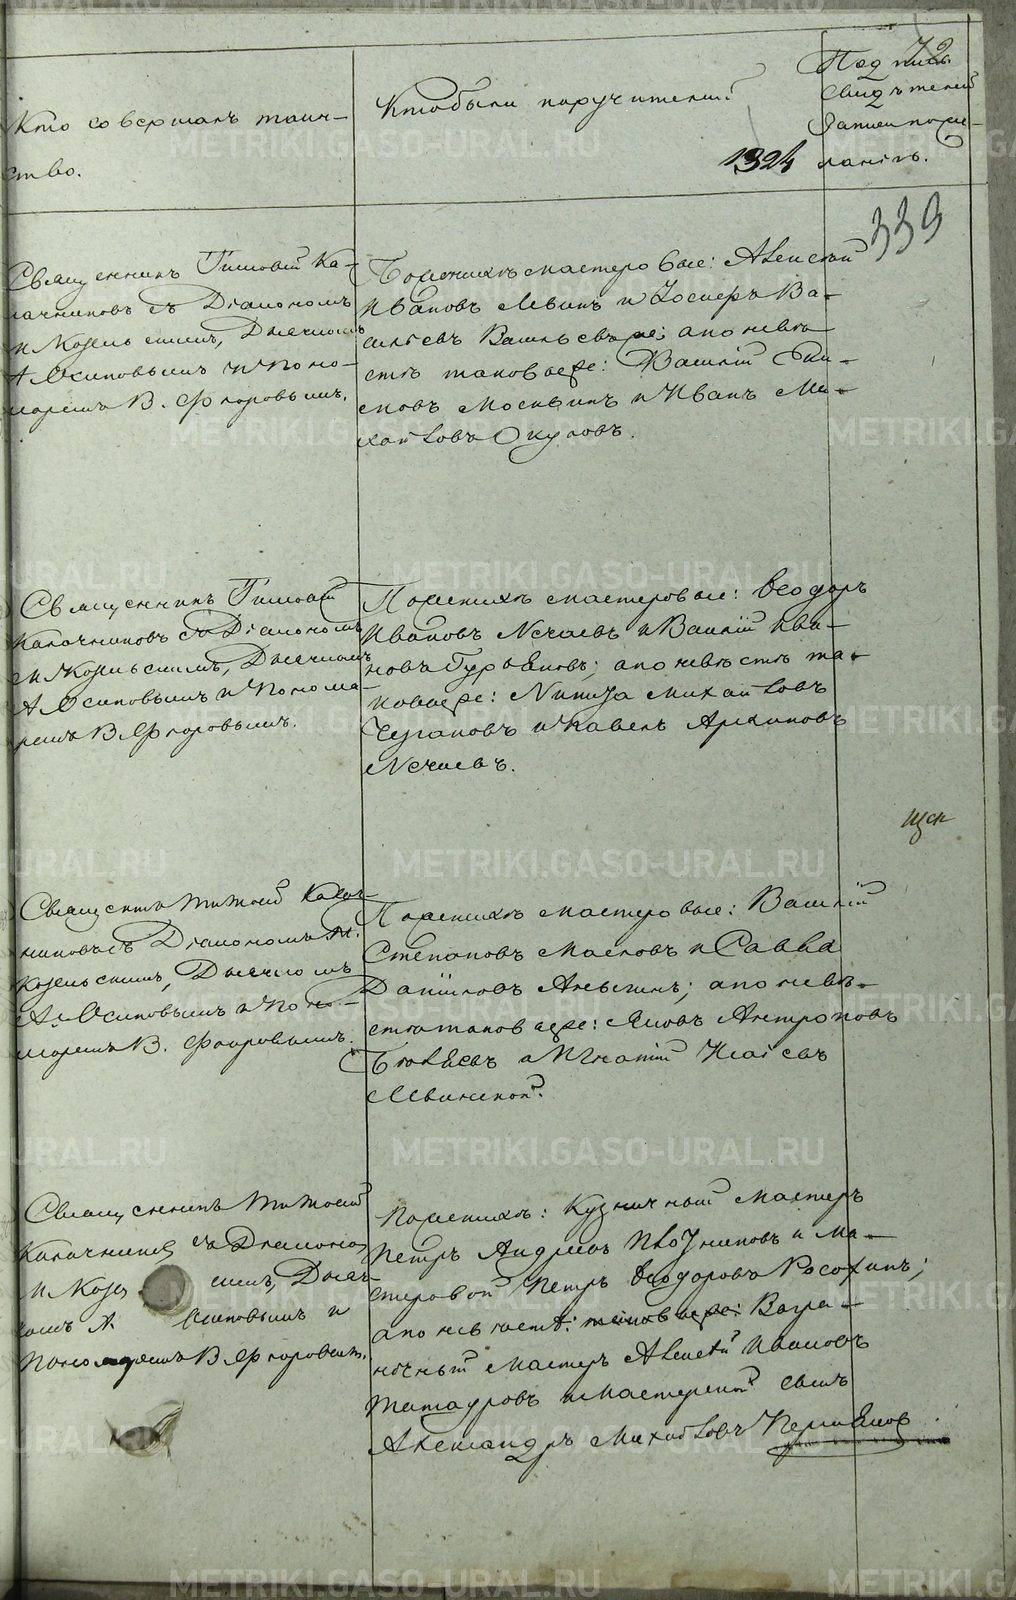 72
Кто совершалъ таин-
ство.
Кто были поручители
1324
Подпись
свидѣтелей
записи по же-
ланію.
339
Священникъ Тимофей Ка-
лачниковъ съ Діакономъ
М. Козельскимъ, Дьячкомъ
А. Осиповымъ и Поно-
маремъ В. Флоровымъ.
По женихѣ мастеровые: Алексѣй
Ивановъ Левинъ и Іосифъ Ва-
сильевъ Васильевъ же; а по невѣ-
стѣ таковые же: Василій
Москвинъ и Иванъ Ми-
хайловъ Окуловъ.
Священникъ Тимофей
Калачниковъ съ Діакономъ
М. Козельскимъ, Дьячкомъ
А. Осиповымъ и Понома-
ремъ В. Флоровымъ.
По женихѣ мастеровые: Ѳеодоръ
Ивановъ Нечаевъ и Василій Ива-
новъ Гурьяновъ; а по невѣстѣ та-
ковые же: Никита Михайловъ
Чугановъ и Павелъ Архиповъ
Нечаевъ.
Священникъ Тимофей Калач-
никовъ съ Діакономъ М.
Козельскимъ, Дьячкомъ
А. Осиповымъ и Поно-
маремъ В. Флоровымъ.
По женихѣ мастеровые: Василій
Степановъ Масловъ и Савва
Даніиловъ; а по невѣ-
стѣ таковые же: Яковъ Антроповъ
и Игнатій Исаевъ
Священникъ Тимофей
Калачниковъ съ Діакономъ
М. Козельскимъ, Дьяч-
комъ А. Осиповымъ и
Пономаремъ В. Флоровымъ.
По женихѣ: Кузничный мастеръ
Петръ Андреевъ Плотниковъ и ма-
стеровой Петръ Ѳеодоровъ;
а по невѣстѣ: таковые же: Вагра-
ночный мастеръ Алексѣй Ивановъ
Татауровъ и мастерской сынъ
Александръ Михайловъ Пермяковъ.
METRIKI.GASO-URAL.RU